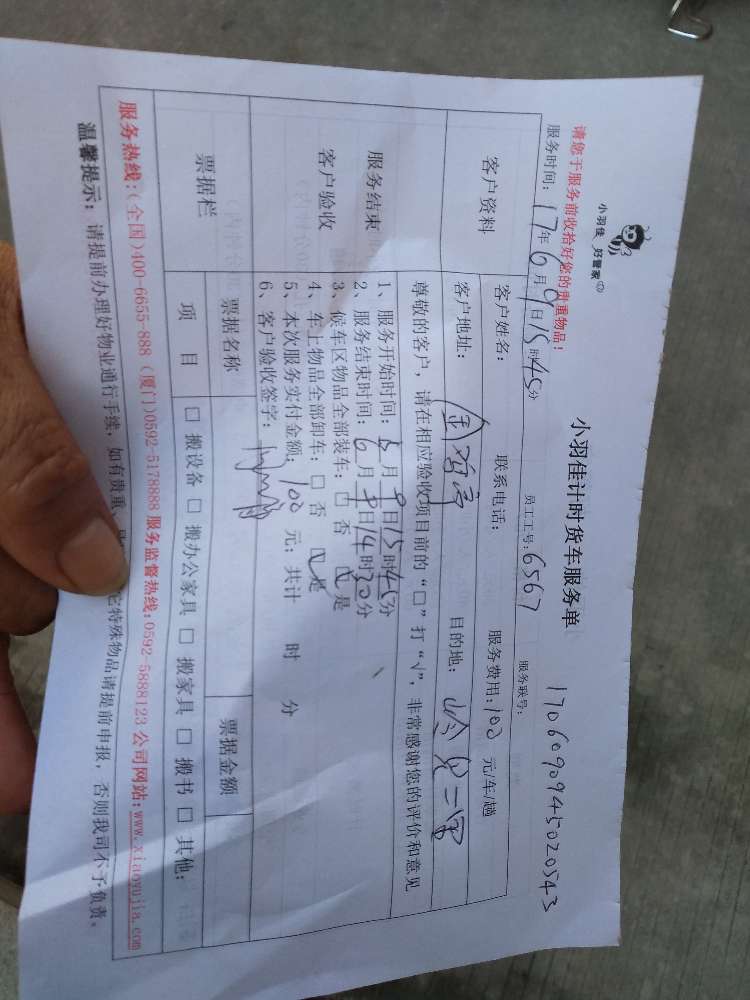 请您于服务前收拾好您的贵重物品！
小羽佳 好管家
小羽佳计时货车服务单
服务时间：17年6月9日15时45分 员工工号：6567 服务联号：170609094502054​3
客户资料 客户姓名： 联系电话： 服务费用：100 元/车/趟
客户地址： 目的地：岭兜二里
尊敬的客户，请在相应验收项目前的“□”打“√”，非常感谢您的评价和意见
服务结束
客户验收
1、服务开始时间：6月9日15时45分
2、服务结束时间：6月9日14时30分
3、候车区物品全部装车：□否 ☑是
4、车上物品全部卸车：□否 ☑是
5、本次服务实付金额：100元；共计 时 分
6、客户验收签字：
票据栏 票据名称 票据金额
项 目 □ 搬设备 □ 搬办公家具 □ 搬家具 □ 搬书 □ 其他：
服务热线：(全国)400-6655-888 (厦门)0592-5178888 服务监督热线:0592-5888123 公司网站:www.xiaoyujia.com
温馨提示：请提前办理好物业通行手续，如有贵重、 它特殊物品请提前申报，否则我司不予负责。